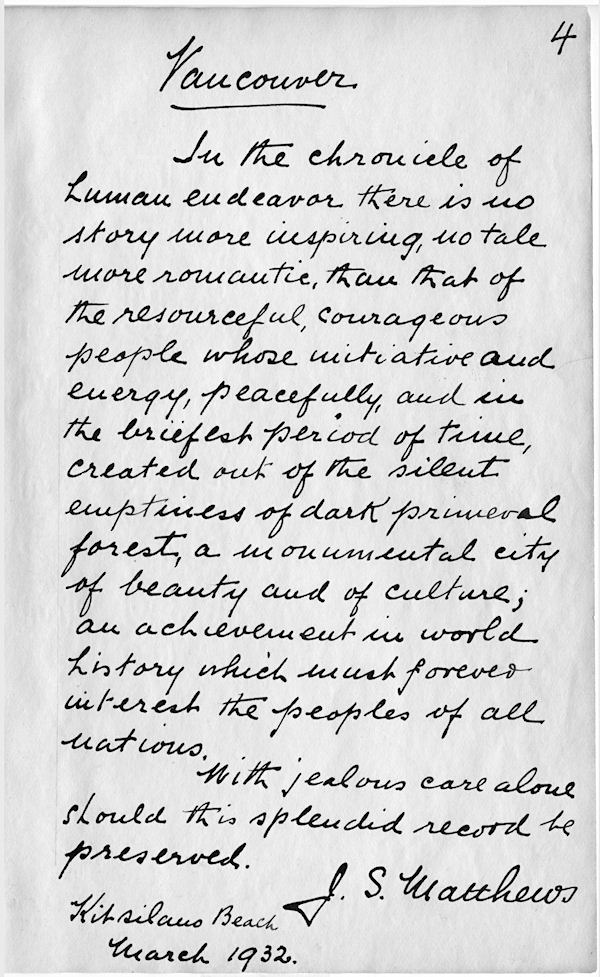 4
Vancouver.
In the chronicle of
human endeavor there is no
story more inspiring, no tale
more romantic, than that of
the resourceful, courageous
people whose initiative and
energy, peacefully, and in
the briefest period of time,
created out of the silent
emptiness of dark primeval
forest, a monumental city
of beauty and of culture;
an achievement in world
history which must forever
interest the peoples of all
nations.
With jealous care alone
should this splendid record be
preserved.
J. S. Matthews
Kitsilano Beach
March 1932.